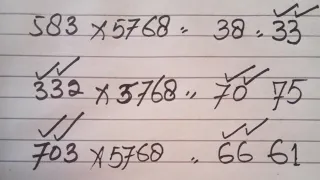 583 × 5768 .. 38 = 33
332 × 5768 .. 70 75
703 × 5768 .. 66 61